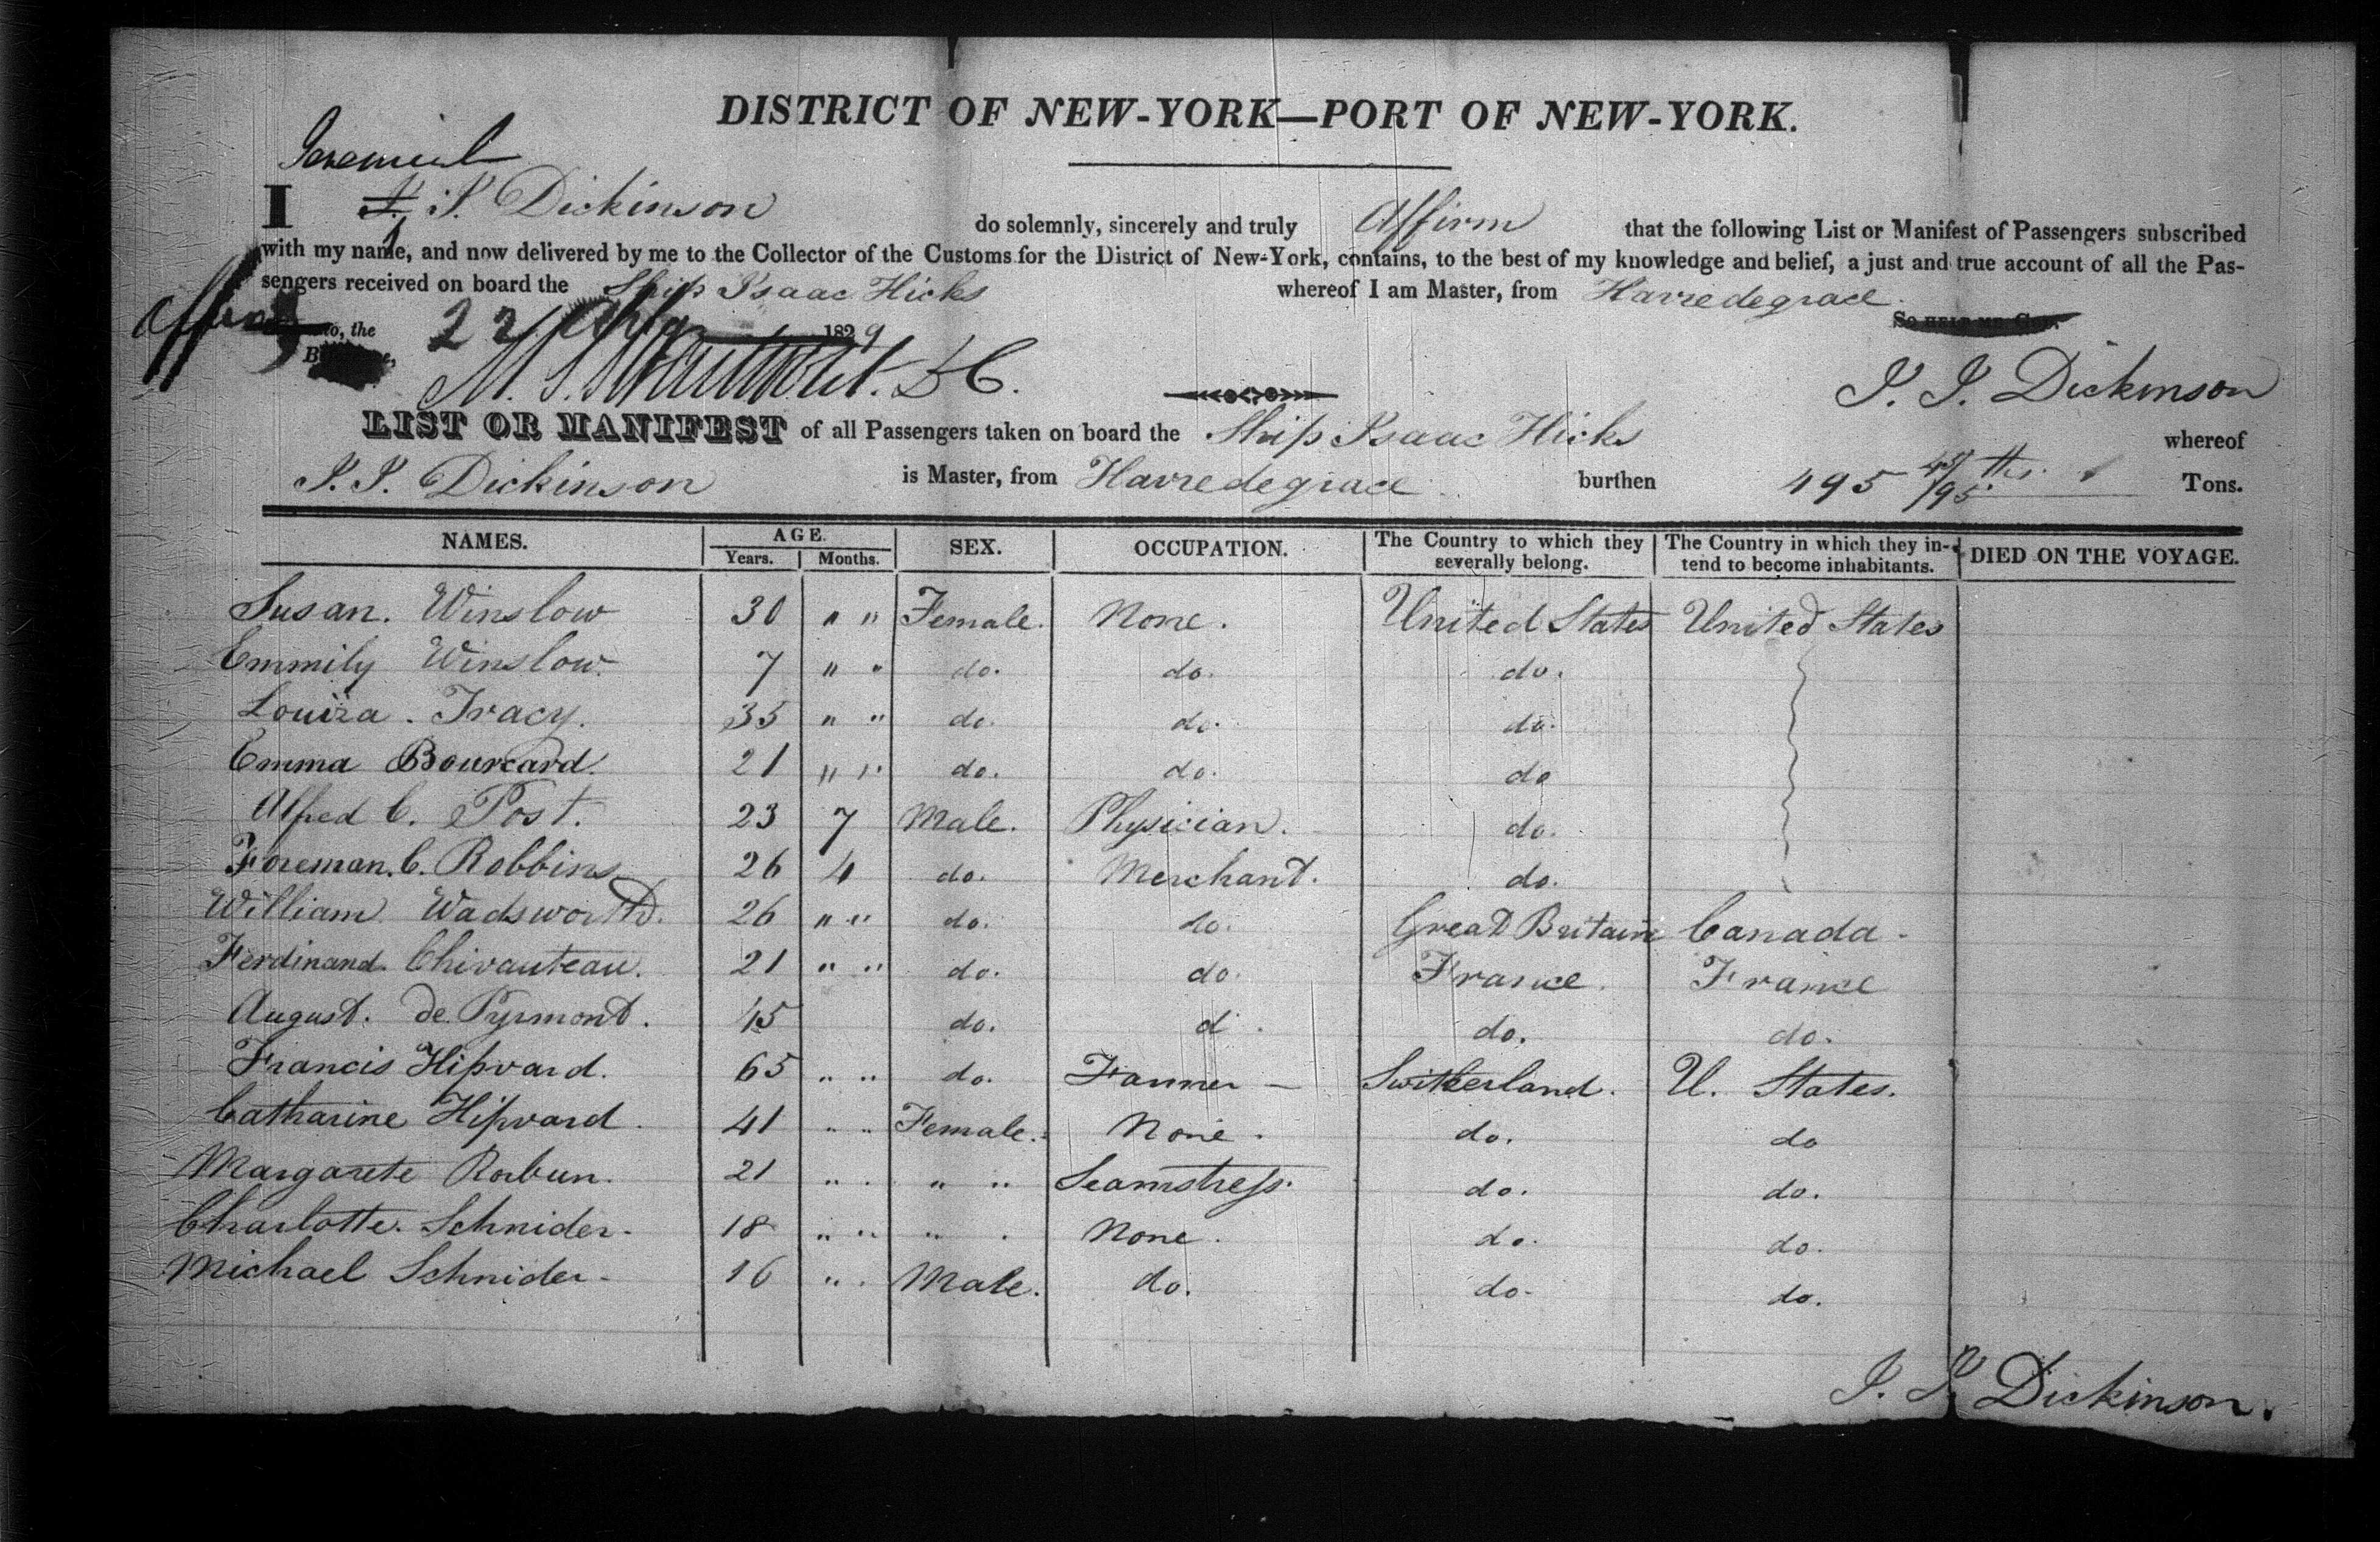 DISTRICT OF NEW-YORK—PORT OF NEW-YORK.
Jeremiah
I J. I. Dickinson do solemnly, sincerely and truly Affirm that the following List or Manifest of Passengers subscribed
with my name, and now delivered by me to the Collector of the Customs for the District of New-York, contains, to the best of my knowledge and belief, a just and true account of all the Pas-
sengers received on board the Ship Isaac Hicks whereof I am Master, from Havredegrace.
So HELP ME GOD.
to, the 22 1829
I. I. Dickinson
LIST OR MANIFEST of all Passengers taken on board the Ship Isaac Hicks whereof
I. I. Dickinson is Master, from Havredegrace burthen 495 45/95ths Tons.
NAMES. AGE. SEX. OCCUPATION. The Country to which they severally belong. The Country in which they in-tend to become inhabitants. DIED ON THE VOYAGE.
Years. Months.
Susan. Winslow 30 " " Female. None. United States United States
Emmily Winslow. 7 " " do. do. do.
Louiza. Tracy. 35 " " do. do. do.
Emma Bourcard. 21 " " do. do. do
Alfred C. Post. 23 7 Male. Physician. do.
Foreman. C. Robbins 26 4 do. Merchant. do.
William Wadsworth. 26 " " do. do. Great Britain Canada -
Ferdinand Chivauteau. 21 " " do. do. France. France
August. de Pyrmont. 45 do. d . do. do.
Francis Hipvard. 65 " " do. Farmer - Switzerland. U. States.
Catharine Hipvard. 41 " " Female. None. do. do
Margarete Rorbun. 21 " " " " Seamstress. do. do.
Charlotte. Schnider. 18 " " " None. do. do.
Michael Schnider. 16 " " Male. do. do. do.
I. I. Dickinson.